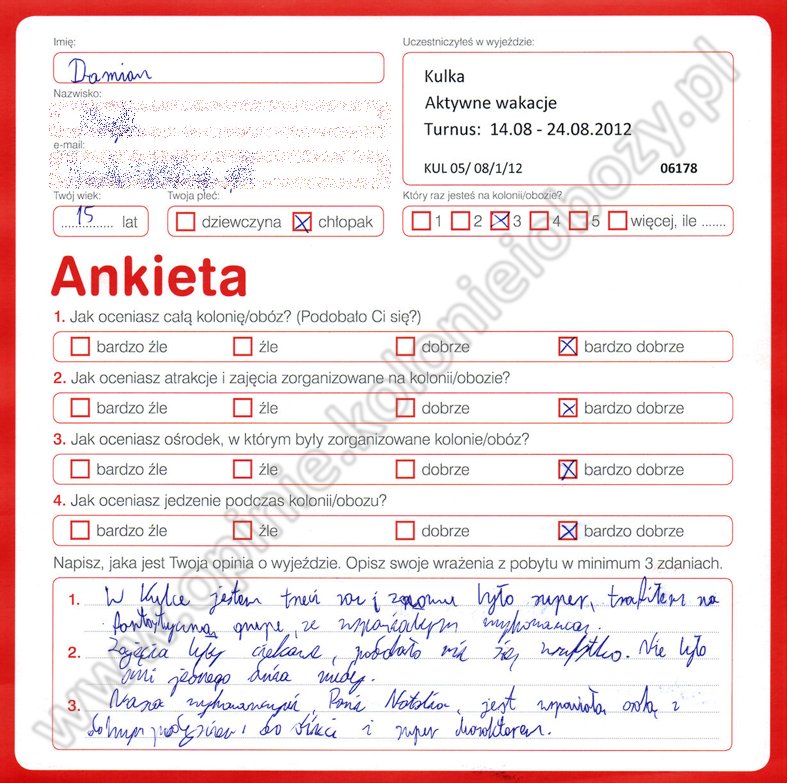 Imię:
Damian
Nazwisko:
e-mail:
Uczestniczyłeś w wyjeździe:
Kulka
Aktywne wakacje
Turnus: 14.08 - 24.08.2012
KUL 05/ 08/1/12 06178
Twój wiek:
15 lat
Twoja płeć:
dziewczyna chłopak
Który raz jesteś na kolonii/obozie?
1 2 3 4 5 więcej, ile .......
Ankieta
1. Jak oceniasz całą kolonię/obóz? (Podobało Ci się?)
bardzo źle źle dobrze bardzo dobrze
2. Jak oceniasz atrakcje i zajęcia zorganizowane na kolonii/obozie?
bardzo źle źle dobrze bardzo dobrze
3. Jak oceniasz ośrodek, w którym były zorganizowane kolonie/obóz?
bardzo źle źle dobrze bardzo dobrze
4. Jak oceniasz jedzenie podczas kolonii/obozu?
bardzo źle źle dobrze bardzo dobrze
Napisz, jaka jest Twoja opinia o wyjeździe. Opisz swoje wrażenia z pobytu w minimum 3 zdaniach.
1. W Kulce jestem trzeci raz i znowu było super, trafiłem na
fantastyczną grupę, ze wspaniałym wychowawcą.
2. Zajęcia były ciekawe, podobało mi się wszystko. Nie było
ani jednego dnia nudy.
3. Nasza wychowawczyni, Pani Natalia, jest wspaniałą osobą z
dobrym podejściem do dzieci i super charakterem.
www.opinie.kolonieiobozy.pl